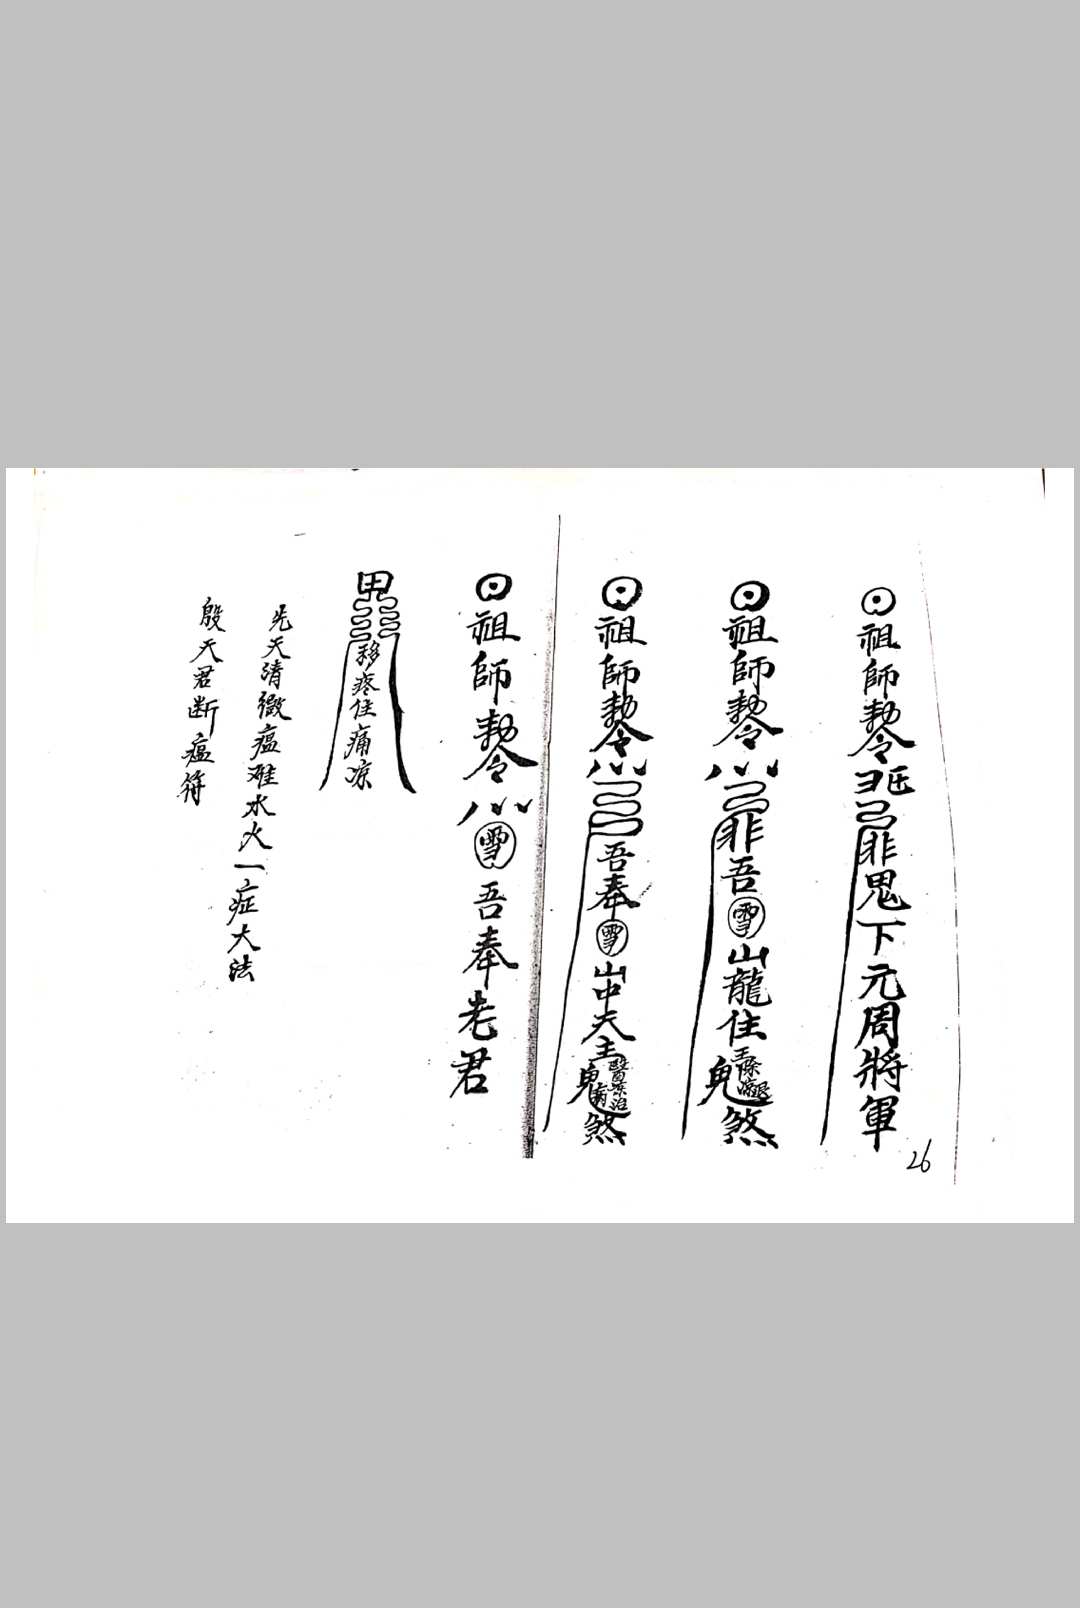 祖師勅令 非鬼下元周將軍
祖師勅令 非吾雪山龍住王鬼煞
祖師勅令 吾奉雪山中天主醫鬼煞
祖師勅令 雪吾奉老君
移疼住痛凉
先天清微瘟难水火一症大法
殷天君断瘟符
26